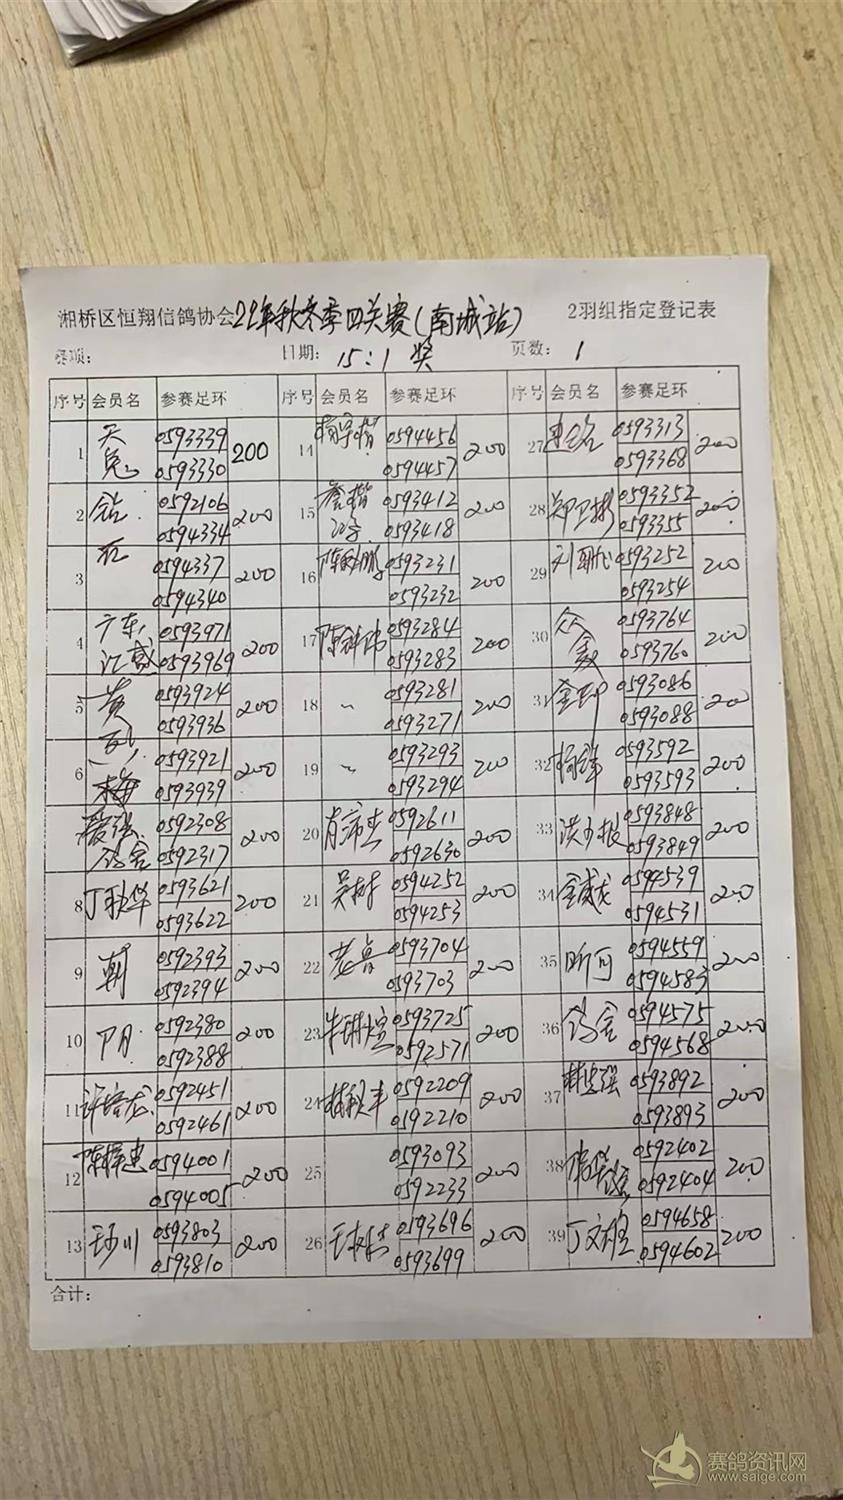 湘桥区恒翔信鸽协会22年秋冬季四关赛(南城站) 2羽组指定登记表
赛项: 日期: 15:1奖 页数: 1
序号 会员名 参赛足环 序号 会员名 参赛足环 序号 会员名 参赛足环
1 天兔 0593339 200 14 0594456 200 27 0593313 200
0593330 0594457 0593368
2 0592106 200 15 0593412 200 28 郑卫彬 0593352 200
0594334 0593418 0593355
3 0594337 200 16 0593231 200 29 0593252 200
0594340 0593232 0593254
4 广东 0593971 200 17 0593284 200 30 众鑫 0593764 200
0593969 0593283 0593760
5 黄 0593924 200 18 ~ 0593281 200 31 0593086 200
0593936 0593271 0593088
6 梅 0593921 200 19 ~ 0593293 200 32 0593592 200
0593939 0593294 0593593
0592308 200 20 0592611 200 33 0593848 200
鸽舍 0592317 0592630 0593849
8 丁秋华 0593621 200 21 吴树 0594252 200 34 金成龙 0594539 200
0593622 0594253 0594531
9 朝 0592393 200 22 老鲁 0593704 200 35 昕可 0594559 200
0592394 0593703 0594583
10 0592380 200 23 0593725 200 36 鸽舍 0594575 200
0592388 0592571 0594568
11 许培龙 0592451 200 24 林秋丰 0592209 200 37 林忠强 0593892 200
0592461 0592210 0593893
12 0594001 200 25 0593093 200 38 0592402 200
0594005 0592233 0592404
13 0593803 200 26 0593696 200 39 0594658 200
0593810 0593699 0594602
合计:
赛鸽资讯网
www.saige.com